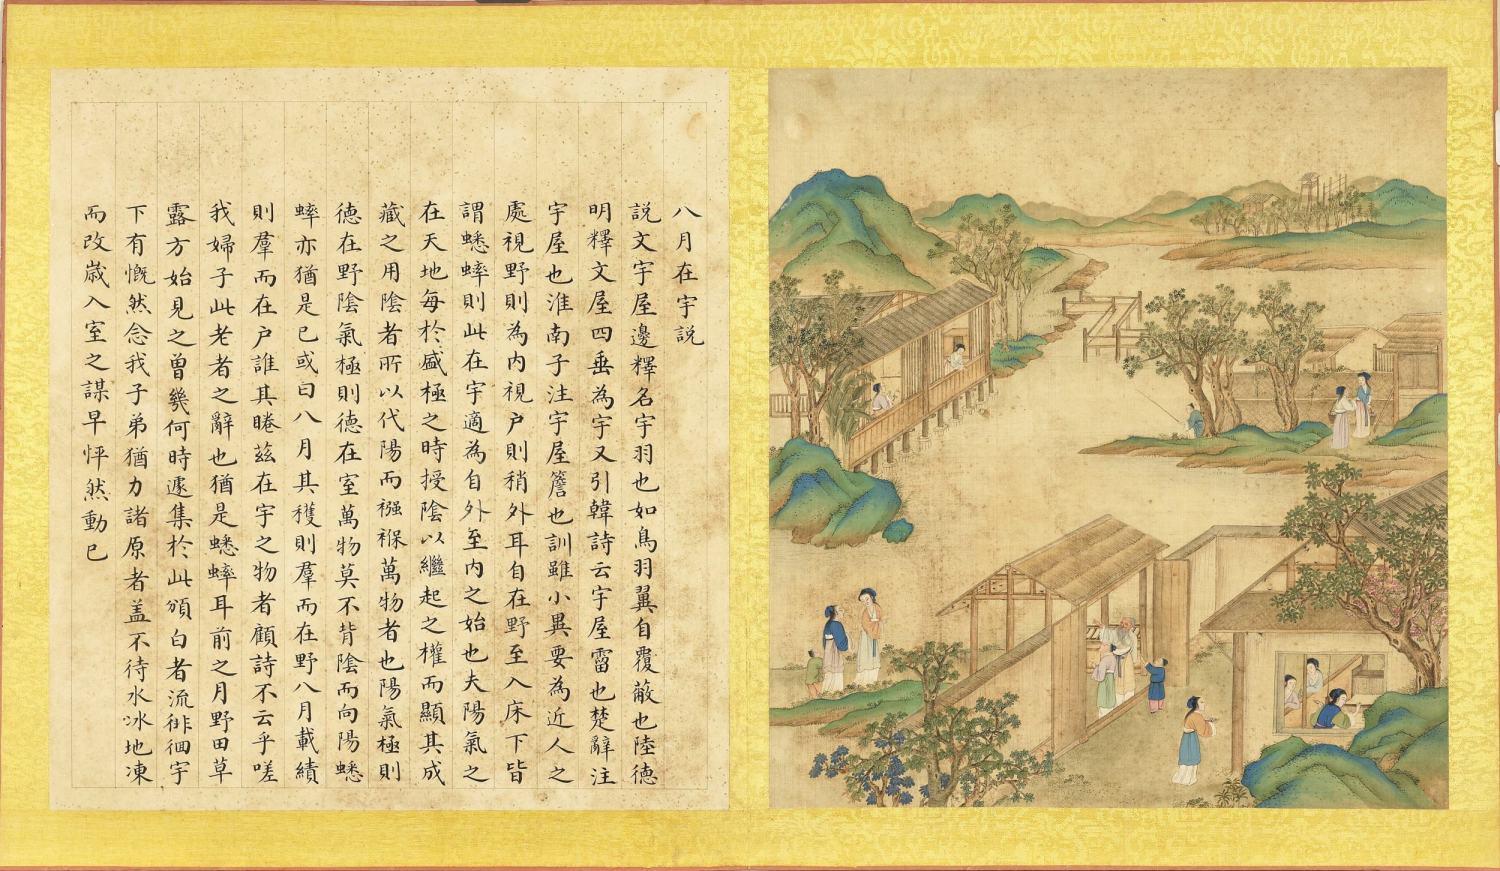 八月在宇説
説文宇屋邊釋名宇羽也如鳥羽翼自覆蔽也陸德
明釋文屋四垂為宇又引韓詩云宇屋霤也楚辭注
宇屋也淮南子注宇屋簷也訓雖小異要為近人之
處視野則為内視户則稍外耳自在野至入床下皆
謂蟋蟀則此在宇適為自外至内之始也夫陽氣之
在天地每於盛極之時授陰以繼起之權而顯其成
藏之用陰者所以代陽而襁褓萬物者也陽氣極則
德在野陰氣極則德在室萬物莫不背陰而向陽蟋
蟀亦猶是已或曰八月其穫則羣而在野八月載績
則羣而在户誰其睠茲在宇之物者顧詩不云乎嗟
我婦子此老者之辭也猶是蟋蟀耳前之月野田草
露方始見之曾幾何時遽集於此頒白者流徘徊宇
下有慨然念我子弟猶力諸原者盖不待水冰地凍
而改歲入室之謀早怦然動已